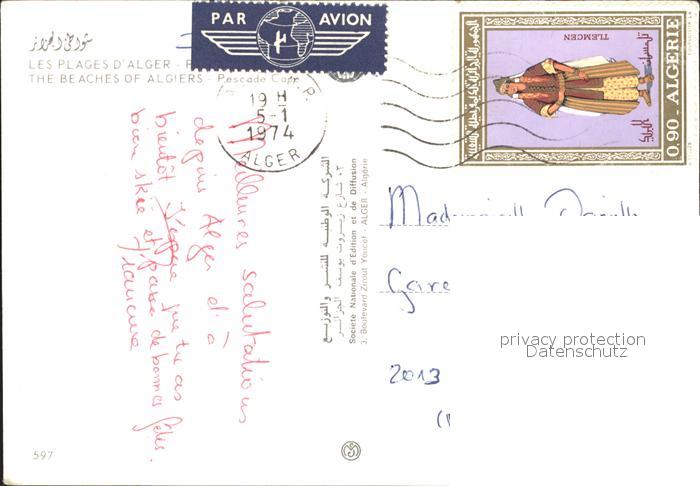 شواطئ الجزائر
LES PLAGES D'ALGER - P
THE BEACHES OF ALGIERS - Pescade Cape
PAR AVION
19 H
5-1
1974
ALGER
TLEMCEN
تلمسان
0.90 ALGERIE
Meilleures salutations
depuis Alger et à
bientôt J'espère que tu as
bien skié et passé de bonnes fêtes.
الشركة الوطنية للنشر والتوزيع
٣، شارع زيروت يوسف الجزائر
Societe Nationale d'Edition et de Diffusion
3, Boulevard Zirout Youcef - ALGER - Algérie
Mademoiselle
Gare
2013
privacy protection
Datenschutz
597